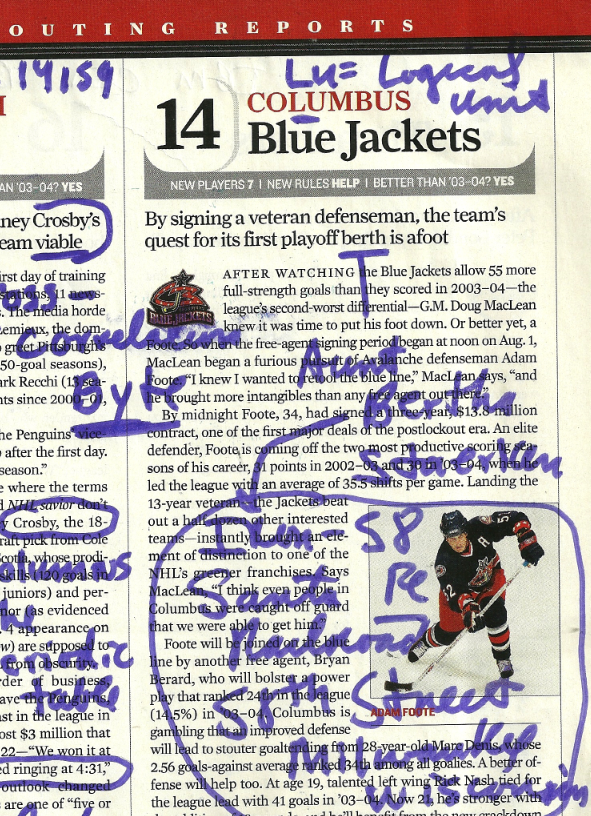 OUTING REPORTS
14159
Lu = Logical
unit
14
COLUMBUS
Blue Jackets
AN '03–04? YES
NEW PLAYERS 7 | NEW RULES HELP | BETTER THAN '03–04? YES
ney Crosby's
eam viable
By signing a veteran defenseman, the team's
quest for its first playoff berth is afoot
irst day of training
stations, 11 news-
s. The media horde
Lemieux, the dom-
o greet Pittsburgh's
50-goal seasons),
ark Recchi (13 sea-
nts since 2000–01,
he Penguins' vice-
o after the first day.
season."
e where the terms
d NHL savior don't
y Crosby, the 18-
raft pick from Cole
Scotia, whose prodi-
skills (120 goals in
juniors) and per-
nor (as evidenced
. 4 appearance on
w) are supposed to
from obscurity.
rder of business,
ave the Penguins,
ast in the league in
ost $3 million that
22—"We won it at
ed ringing at 4:31,"
outlook changed
s are one of "five or
BLUE JACKETS
AFTER WATCHING the Blue Jackets allow 55 more
full-strength goals than they scored in 2003–04—the
league's second-worst differential—G.M. Doug MacLean
knew it was time to put his foot down. Or better yet, a
Foote. So when the free-agent signing period began at noon on Aug. 1,
MacLean began a furious pursuit of Avalanche defenseman Adam
Foote. "I knew I wanted to retool the blue line," MacLean says, "and
he brought more intangibles than any free agent out there."
By midnight Foote, 34, had signed a three-year, $13.8 million
contract, one of the first major deals of the postlockout era. An elite
defender, Foote is coming off the two most productive scoring sea-
sons of his career, 31 points in 2002–03 and 30 in '03–04, when he
led the league with an average of 35.5 shifts per game. Landing the
13-year veteran—the Jackets beat
out a half dozen other interested
teams—instantly brought an ele-
ment of distinction to one of the
NHL's greener franchises. Says
MacLean, "I think even people in
Columbus were caught off guard
that we were able to get him."
Foote will be joined on the blue
line by another free agent, Bryan
Berard, who will bolster a power
play that ranked 24th in the league
(14.5%) in '03–04. Columbus is
gambling that an improved defense
will lead to stouter goaltending from 28-year-old Marc Denis, whose
2.56 goals-against average ranked 34th among all goalies. A better of-
fense will help too. At age 19, talented left wing Rick Nash tied for
the league lead with 41 goals in '03–04. Now 21, he's stronger with
ADAM FOOTE
52
A
Byke
Aunt
Bertha
58
Santa
58th Street
Milwaukee
Wisconsin